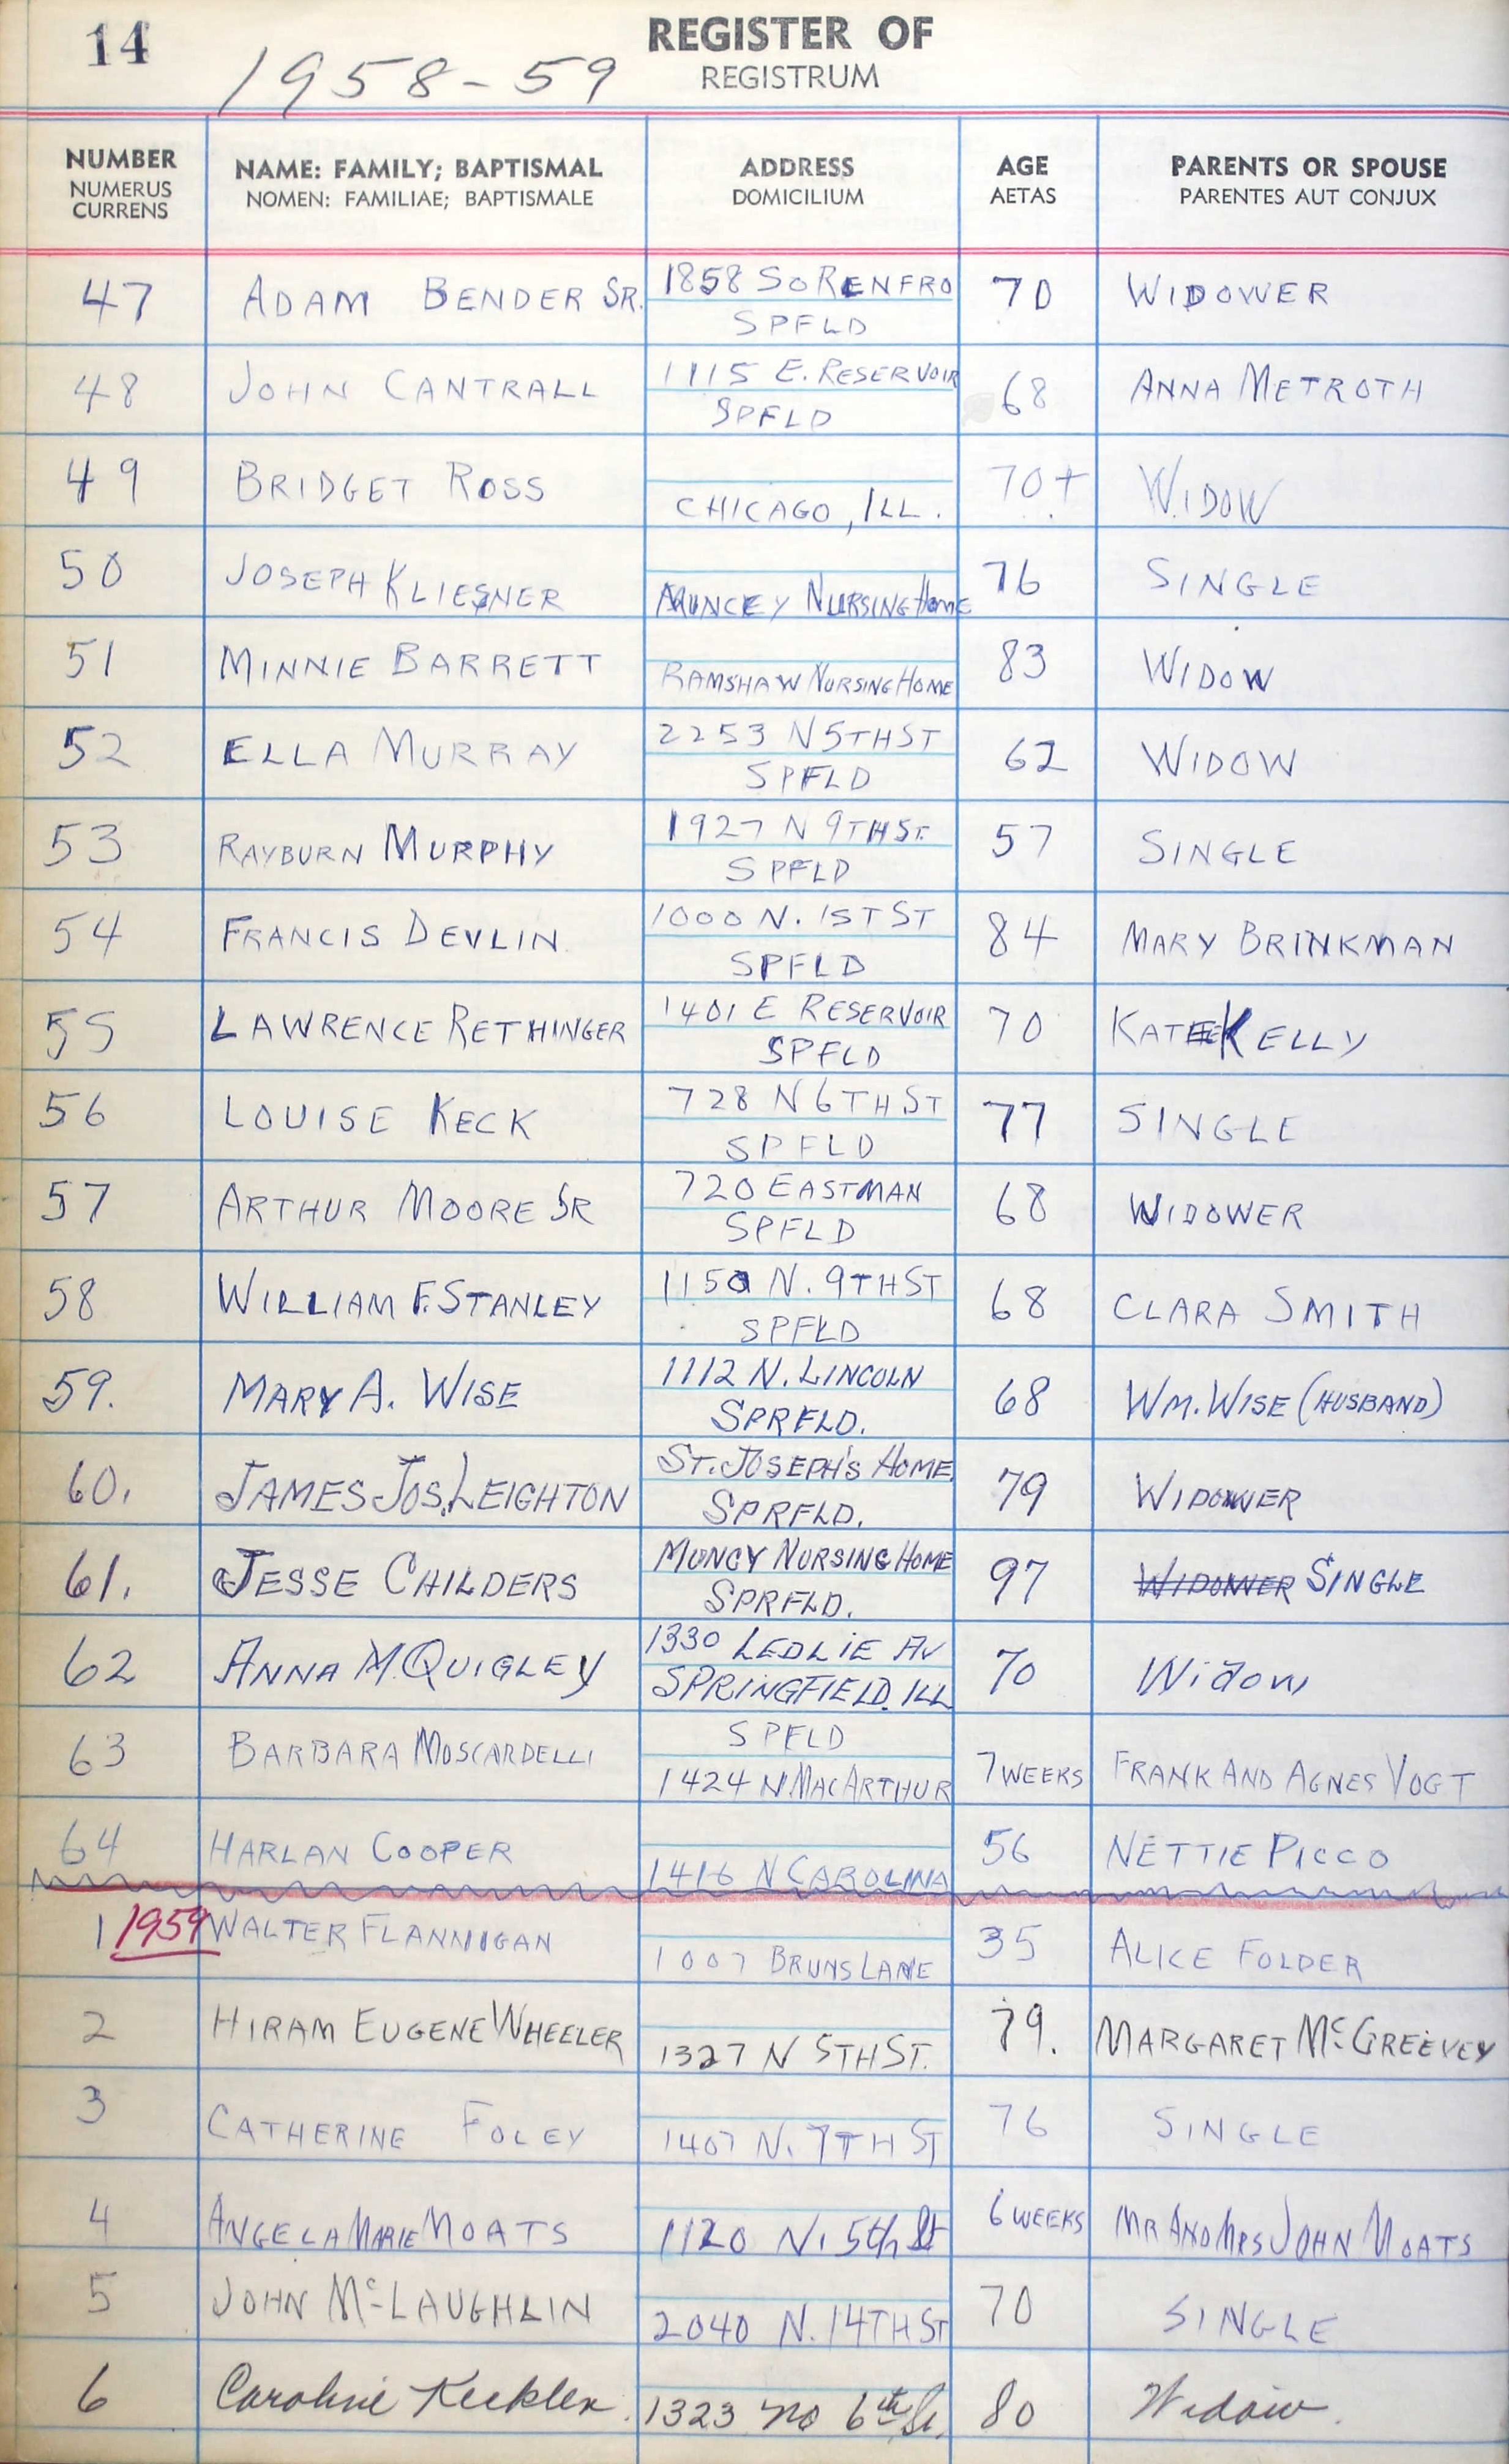 14
1958-59
REGISTER OF
REGISTRUM
NUMBER
NUMERUS
CURRENS
NAME: FAMILY; BAPTISMAL
NOMEN: FAMILIAE; BAPTISMALE
ADDRESS
DOMICILIUM
AGE
AETAS
PARENTS OR SPOUSE
PARENTES AUT CONJUX
47 ADAM BENDER SR. 1858 SO RENFRO 70 WIDOWER
SPFLD
48 JOHN CANTRALL 1115 E. RESERVOIR 68 ANNA METROTH
SPFLD
49 BRIDGET ROSS 70+ WIDOW
CHICAGO, ILL.
50 JOSEPH KLIESNER 76 SINGLE
MUNCEY NURSING Home
51 MINNIE BARRETT 83 WIDOW
RAMSHAW NURSING HOME
52 ELLA MURRAY 2253 N 5TH ST 62 WIDOW
SPFLD
53 RAYBURN MURPHY 1927 N 9TH ST. 57 SINGLE
SPFLD
54 FRANCIS DEVLIN 1000 N. 1ST ST 84 MARY BRINKMAN
SPFLD
55 LAWRENCE RETHINGER 1401 E RESERVOIR 70 KELLY
SPFLD
56 LOUISE KECK 728 N 6TH ST 77 SINGLE
SPFLD
57 ARTHUR MOORE SR 720 EASTMAN 68 WIDOWER
SPFLD
58 WILLIAM F. STANLEY 1150 N. 9TH ST 68 CLARA SMITH
SPFLD
59. MARY A. WISE 1112 N. LINCOLN 68 WM. WISE (HUSBAND)
SPRFLD.
60. JAMES JOS. LEIGHTON ST. JOSEPH'S HOME 79 WIDOWER
SPRFLD.
61. JESSE CHILDERS MUNCY NURSING HOME 97 WIDOWER SINGLE
SPRFLD.
62 ANNA M. QUIGLEY 1330 LEDLIE AV 70 Widow
SPRINGFIELD. ILL
63 BARBARA MOSCARDELLI SPFLD 7 WEEKS FRANK AND AGNES VOGT
1424 N MACARTHUR
64 HARLAN COOPER 56 NETTIE PICCO
1416 N CAROLINA
1 1959 WALTER FLANNIGAN 35 ALICE FOLDER
1007 BRUNS LANE
2 HIRAM EUGENE WHEELER 79. MARGARET McGREEVEY
1327 N 5TH ST.
3 CATHERINE FOLEY 76 SINGLE
1407 N. 7TH ST
4 ANGELA MARIE MOATS 6 WEEKS MR AND MRS JOHN MOATS
1120 N. 5th St
5 JOHN McLAUGHLIN 70 SINGLE
2040 N. 14TH ST
6 Caroline 1323 no 6th St. 80 Widow.